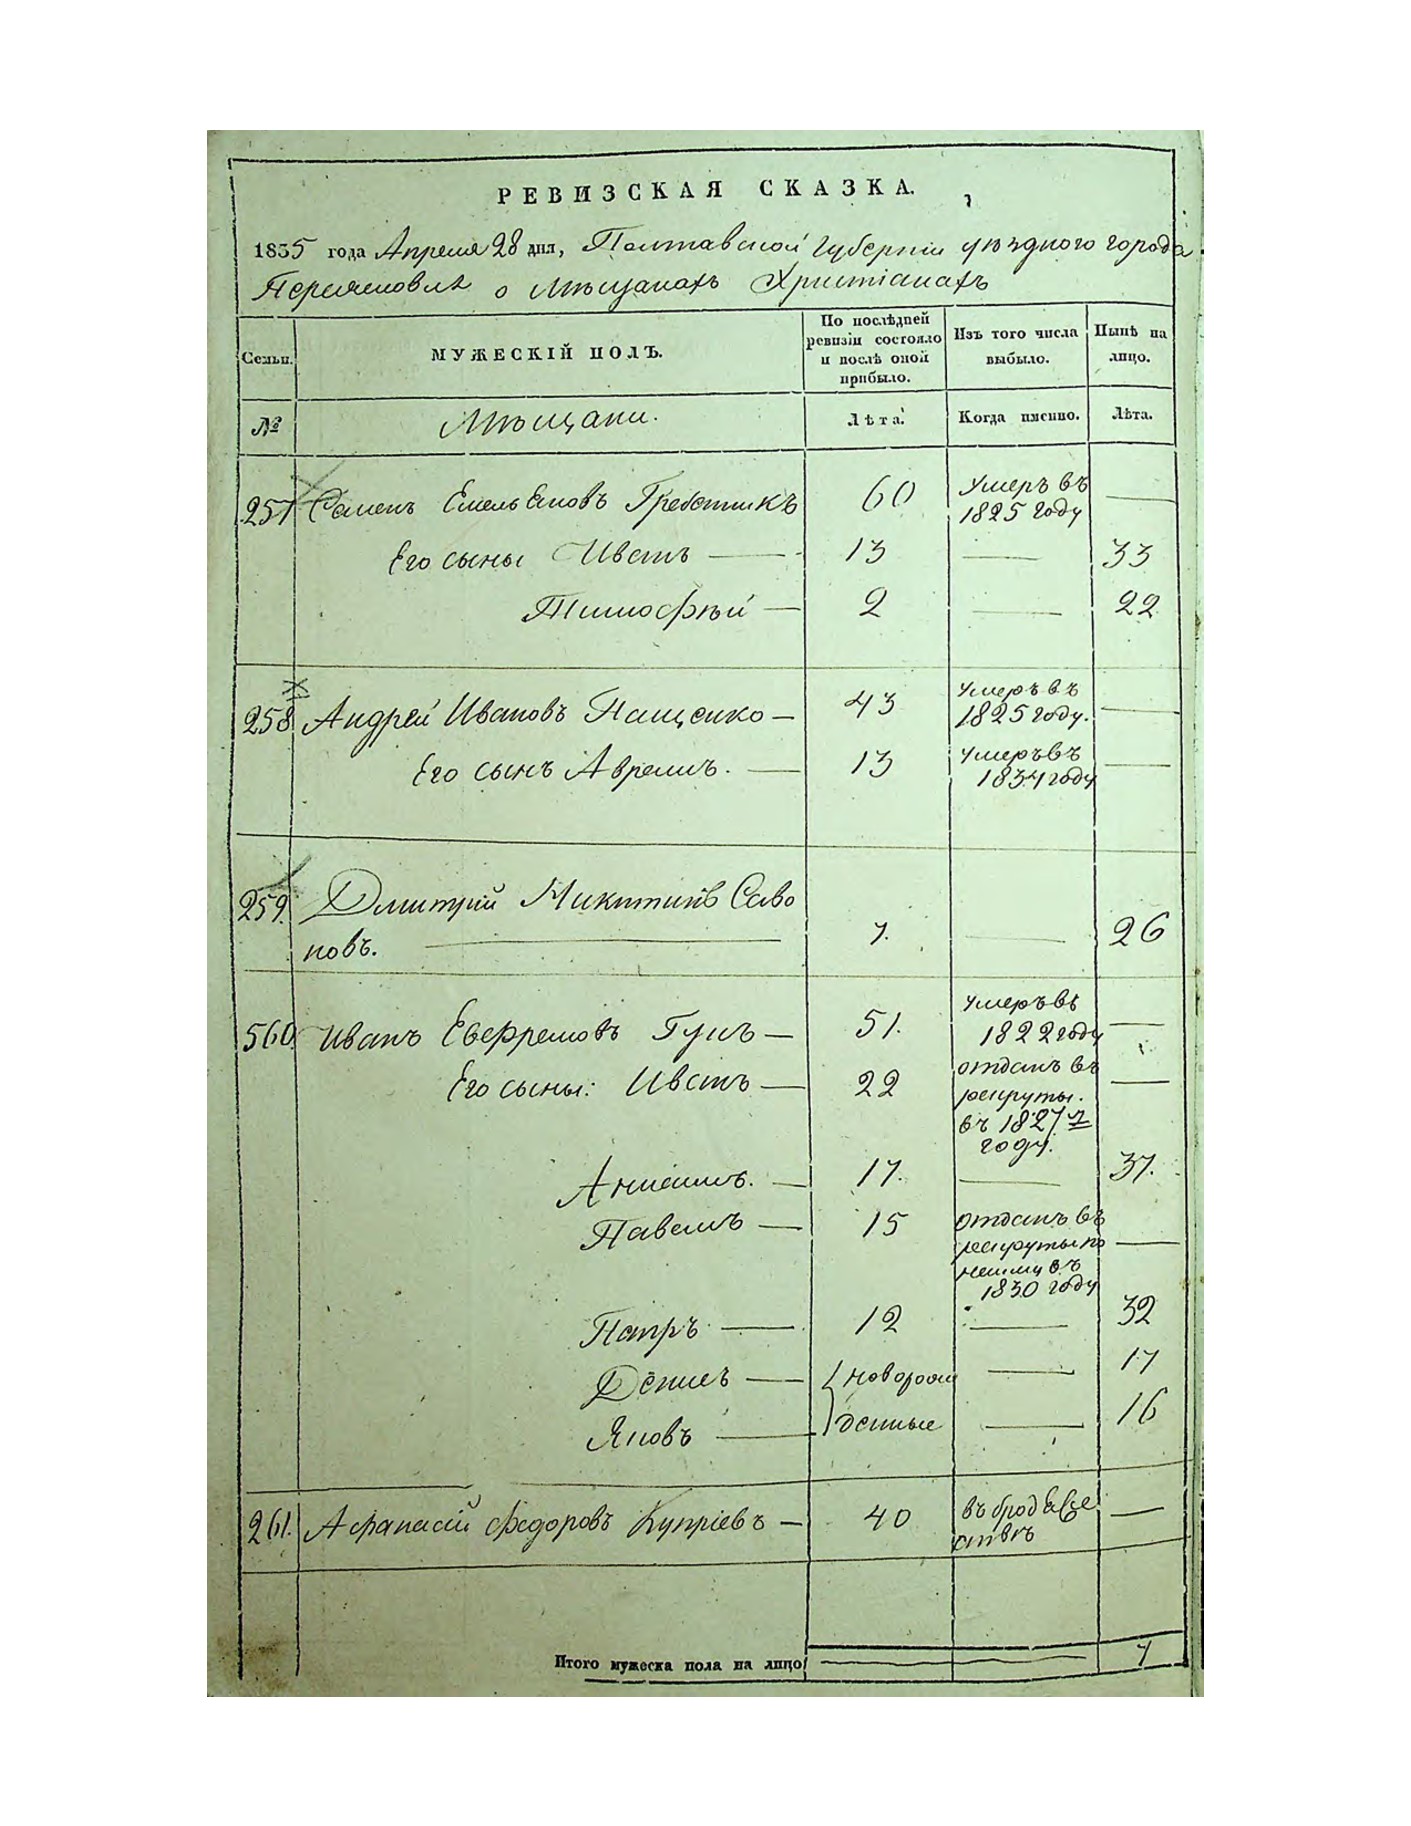 РЕВИЗСКАЯ СКАЗКА.
1835 года Апреля 28 дня, Полтавской Губернии уѣзднаго города
Переяслова о Мѣщанахъ Христіанахъ
Семьи. МУЖЕСКІЙ ПОЛЪ. По послѣдней ревизіи состояло и послѣ оной прибыло. Изъ того числа выбыло. Нынѣ на лицо.
№ Мѣщани. Лѣта. Когда именно. Лѣта.
257 Семенъ Емельяновъ Гребенникъ 60 Умеръ въ 1825 году
Его сыны Ивanъ 13 33
Тимофѣй 2 22
258 Андрей Ивановъ Пащенко 43 Умеръ въ 1825 году.
Его сынъ Аврамъ. 13 умеръ въ 1834 году
259. Дмитрий Микитинъ Саво
новъ. 7. 26
560. Иванъ Евефремовъ Гунъ 51. умеръ въ 1822 году
Его сыны: Иванъ 22 отданъ въ рекруты. въ 1827 г году.
17. 37.
Павелъ 15 отданъ въ рекруты 1830 году
Петръ 12 32
Денисъ новорож 17
Яковъ денные 16
261. Афанасій Федоровъ Купріевъ 40 въ бродяже
ствѣ
Итого мужеска пола на лицо 7